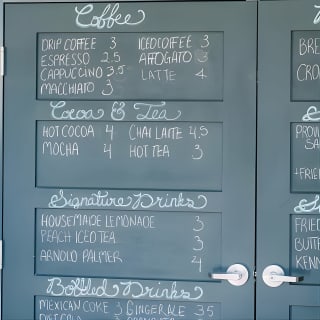 Coffee
DRIP COFFEE 3 ICED COFFEE 3
ESPRESSO 2.5 AFFOGATO 3
CAPPUCCINO 3.5 LATTE 4
MACCHIATO 3
Cocoa & Tea
HOT COCOA 4 CHAI LATTE 4.5
MOCHA 4 HOT TEA 3
Signature Drinks
HOUSEMADE LEMONADE 3
PEACH ICED TEA 3
ARNOLD PALMER 4
Bottled Drinks
MEXICAN COKE 3 GINGER ALE 3.5
DIET COLA
BRE
CRO
PROV
SA
+FRIE
FRIED
BUTT
KENN